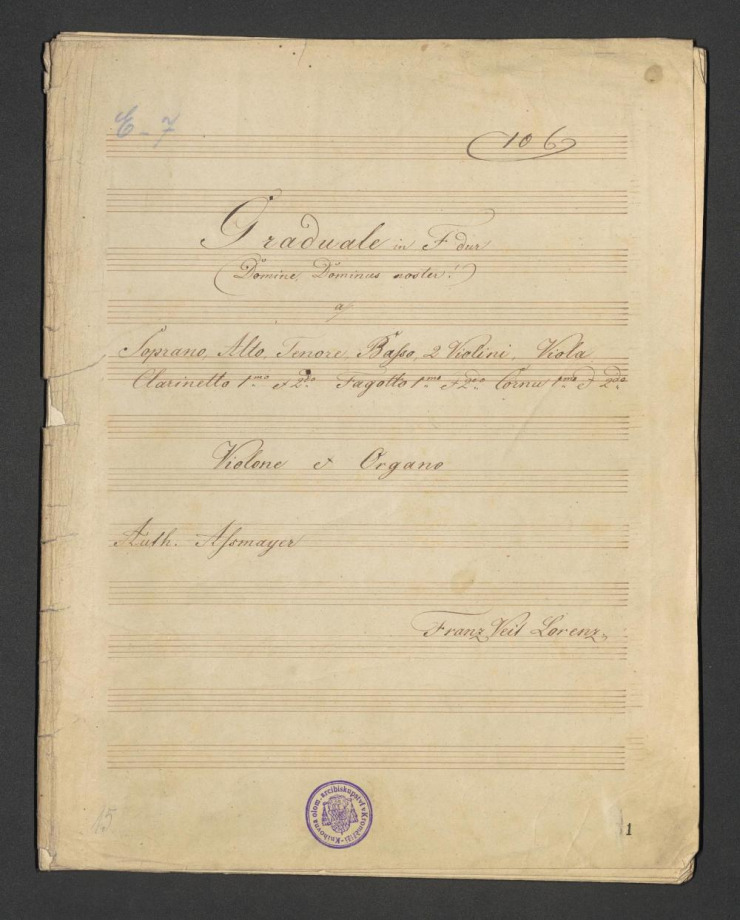 E-7
106
Graduale in F dur
("Domine, Dominus noster!")
a
Soprano, Alto, Tenore, Basso, 2 Violini, Viola
Clarinetto 1mo et 2do Fagotto 1mo et 2do Cornu 1mo et 2do
Violone et Organo
Auth. Assmayer
Franz Veit Lorenz
Knihovna olom. arcibiskupství v Kroměříži
15
1